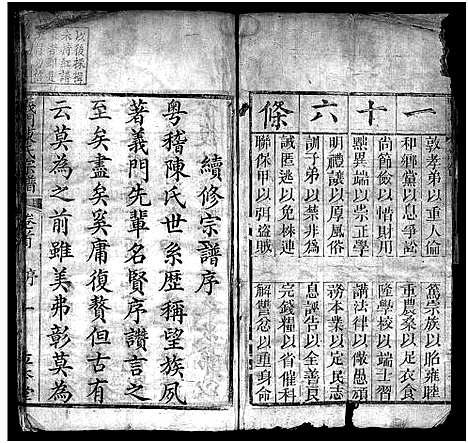 一十六條
敦孝弟以重人倫
篤宗族以昭雍睦
和鄉黨以息爭訟
重農桑以足衣食
尚節儉以惜財用
隆學校以端士習
黜異端以崇正學
講法律以儆愚頑
明禮讓以厚風俗
務本業以定民志
訓子弟以禁非為
息誣告以全善良
誡匿逃以免株連
完錢糧以省催科
聯保甲以弭盜賊
解讐忿以重身命
續修宗譜序
粵稽陳氏世系歷稱望族夙
著義門先輩名賢序讚言之
至矣盡矣奚庸復贅但古有
云莫為之前雖美弗彰莫為
宗譜 卷首 序 一